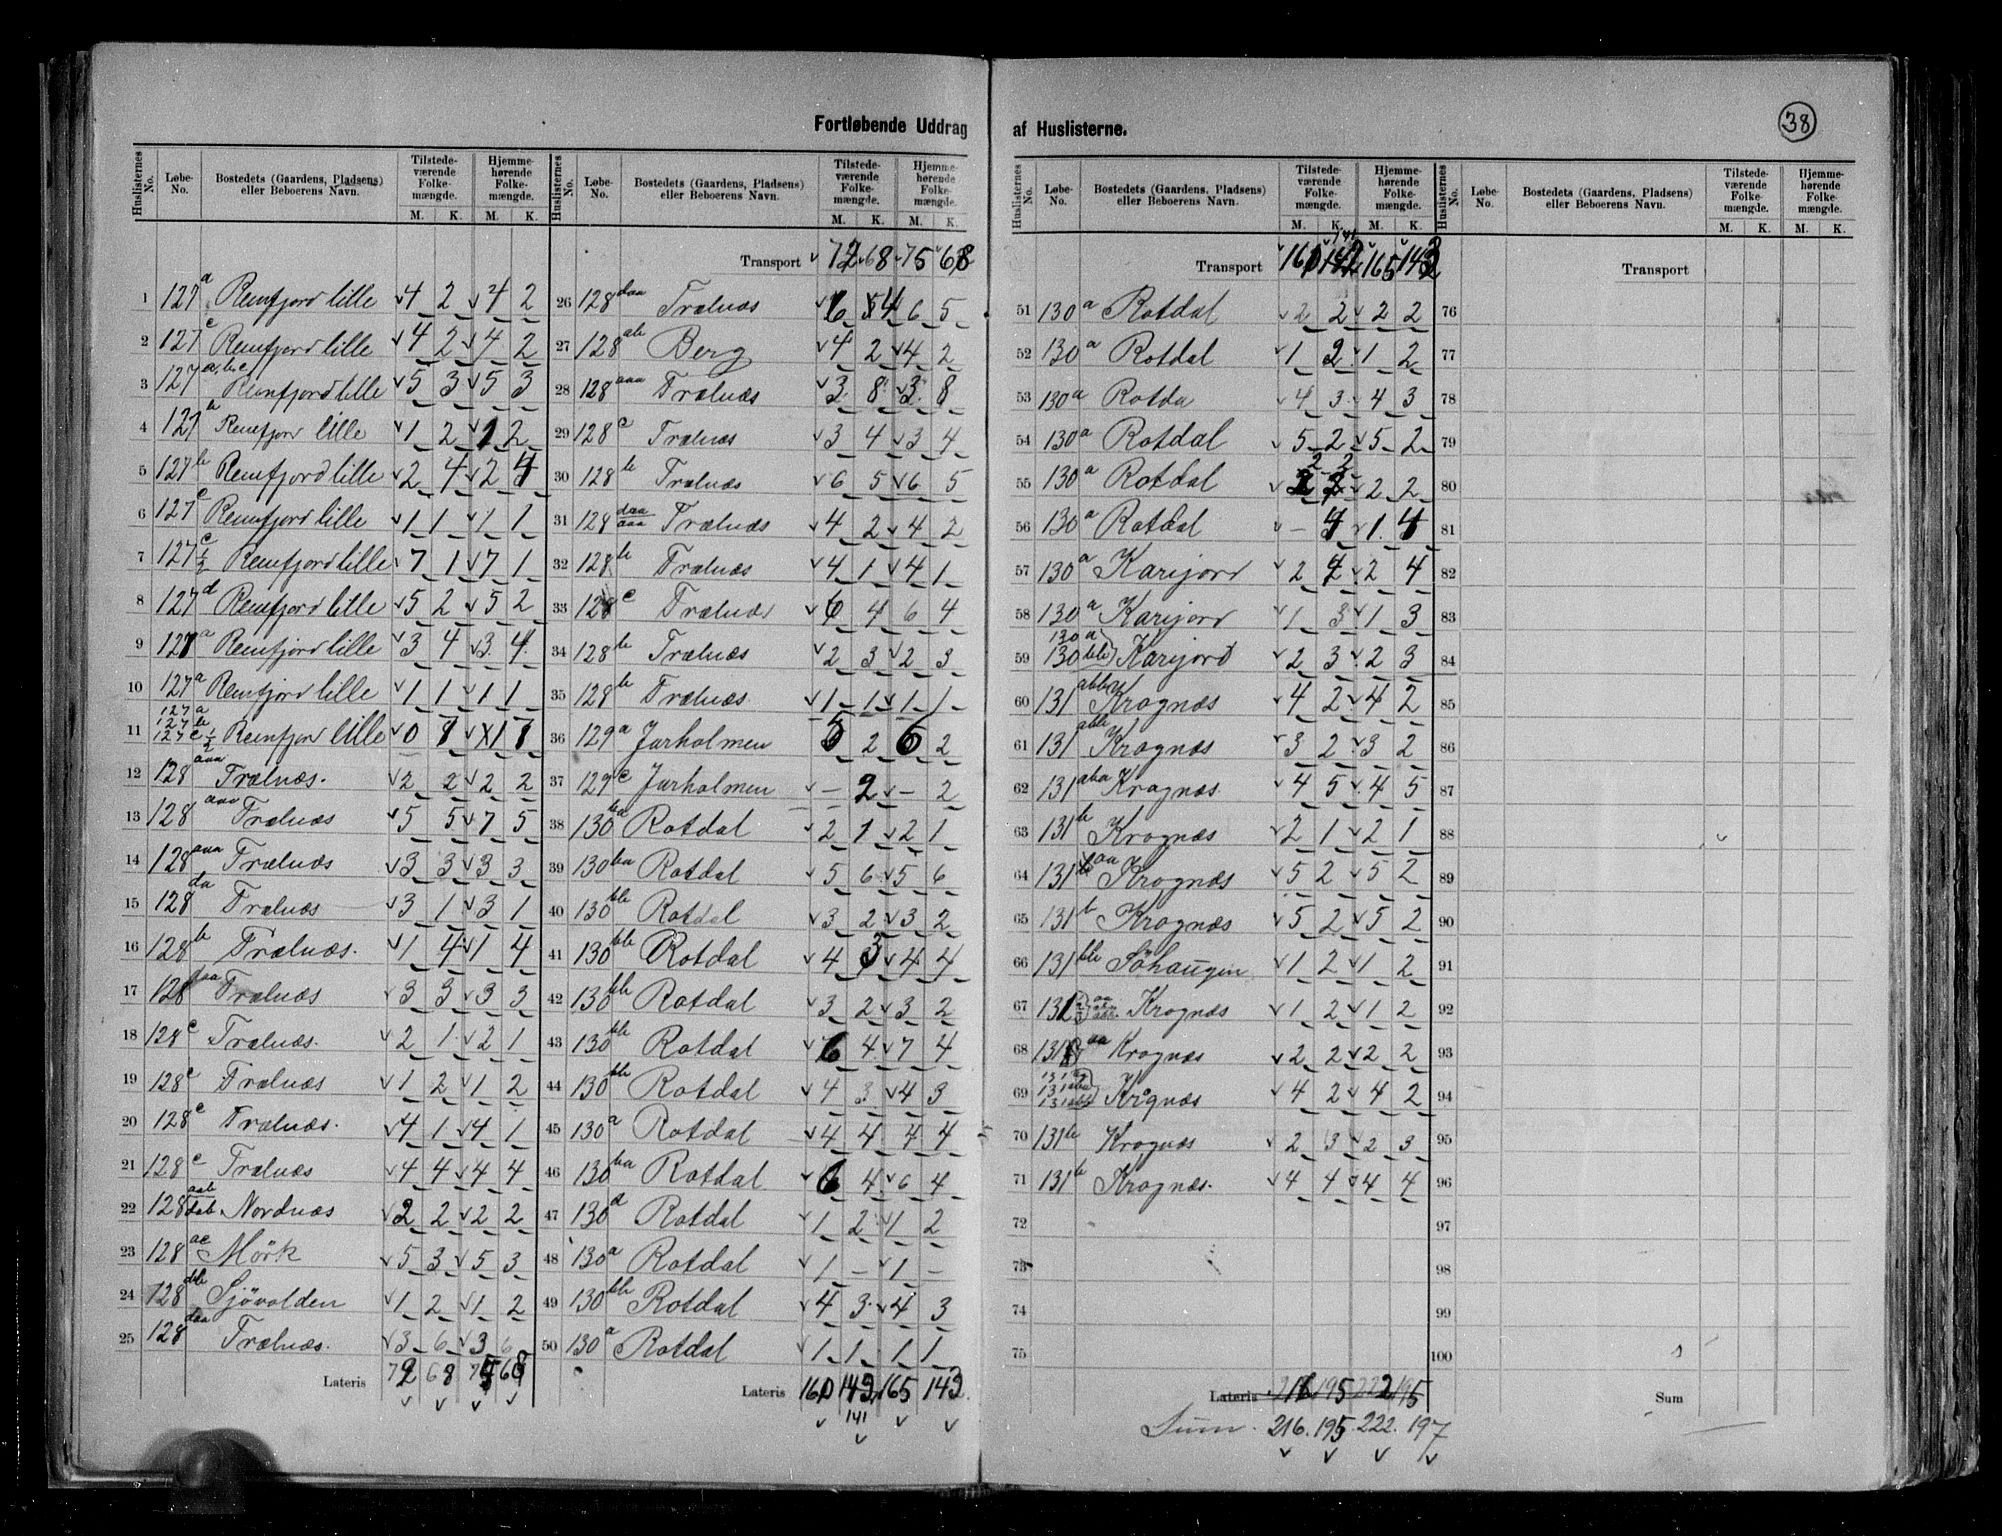 Fortløbende Uddrag af Huslisterne.
38
Huslisternes No. Løbe-No. Bostedets (Gaardens, Pladsens) eller Beboerens Navn. Tilstedeværende Folkemængde. M. K. Hjemmehørende Folkemængde. M. K.
1 127 a Remfjord lille 4 2 4 2
2 127 c Remfjord lille 4 2 4 2
3 127 a, b, c Remfjord lille 5 3 5 3
4 127 a Remfjord lille 1 2 1 2
5 127 b Remfjord lille 2 4 2 4
6 127 c Remfjord lille 1 1 1 1
7 127 c ½ Remfjord lille 7 1 7 1
8 127 d Remfjord lille 5 2 5 2
9 127 a Remfjord lille 3 4 3 4
10 127 a Remfjord lille 1 1 1 1
11 127 a 127 b 127 c ½ Remfjord lille 0 7 1 7
12 128 aaa Trælnæs. 2 2 2 2
13 128 aaa Trælnæs 5 5 7 5
14 128 aaa Trælnæs 3 3 3 3
15 128 da Trælnæs 3 1 3 1
16 128 b Trælnæs. 1 4 1 4
17 128 daa Trælnæs 3 3 3 3
18 128 c Trælnæs. 2 1 2 1
19 128 c Trælnæs 1 2 1 2
20 128 c Trælnæs. 4 1 4 1
21 128 c Trælnæs 4 4 4 4
22 128 aab dab Nordnæs 2 2 2 2
23 128 ac Mörk 5 3 5 3
24 128 db Sjövolden 1 2 1 2
25 128 daa Trælnæs. 3 6 3 6
Lateris 72 68 75 68
Transport 72 68 75 68
26 128 daa Trælnæs 6 4 6 5
27 128 ab Berg 4 2 4 2
28 128 aaa Trælnæs 3 8 3 8
29 128 c Trælnæs 3 4 3 4
30 128 b Trælnæs 6 5 6 5
31 128 daa aaa Trælnæs 4 2 4 2
32 128 b Trælnæs 4 1 4 1
33 128 c Trælnæs 6 4 6 4
34 128 b Trælnæs 2 3 2 3
35 128 b Trælnæs 1 1 1 1
36 129 a Jarholmen 5 2 6 2
37 129 c Jarholmen – 2 – 2
38 130 ba Rotdal 2 1 2 1
39 130 ba Rotdal 5 6 5 6
40 130 bb Rotdal 3 2 3 2
41 130 bb Rotdal 4 3 4 4
42 130 bb Rotdal 3 2 3 2
43 130 bb Rotdal 6 4 7 4
44 130 bb Rotdal 4 3 4 3
45 130 a Rotdal 4 4 4 4
46 130 ba Rotdal 6 4 6 4
47 130 a Rotdal 1 2 1 2
48 130 a Rotdal 1 – 1 –
49 130 bb Rotdal 4 3 4 3
50 130 a Rotdal 1 1 1 1
Lateris 160 142 165 143
141
Huslisternes No. Løbe-No. Bostedets (Gaardens, Pladsens) eller Beboerens Navn. Tilstedeværende Folkemængde. M. K. Hjemmehørende Folkemængde. M. K.
141
Transport 160 142 165 143
51 130 a Rotdal 2 2 2 2
52 130 a Rotdal 1 2 1 2
53 130 a Rotda 4 3 4 3
54 130 a Rotdal 5 2 5 2
55 130 a Rotdal 2 2 2 2
56 130 a Rotdal – 4 1 4
57 130 a Karijord 2 4 2 4
58 130 a Karijord 1 3 1 3
59 130 a 130 bb Karijord 2 3 2 3
60 131 abb Krognæs 4 2 4 2
61 131 abb Krognæs 3 2 3 2
62 131 aba Krognæs 4 5 4 5
63 131 b Krognæs 2 1 2 1
64 131 aa Krognæs 5 2 5 2
65 131 b Krognæs 5 2 5 2
66 131 bb Söhaugen 1 2 1 2
67 131 aa Krognæs 1 2 1 2
68 131 aa Krognæs 2 2 2 2
69 131 Krognæs 4 2 4 2
70 131 b Krognæs 2 3 2 3
71 131 b Krognæs. 4 4 4 4
72
73
74
75
Lateris 216 195 222 195
Sum 216. 195 222. 197
Transport
76
77
78
79
80
81
82
83
84
85
86
87
88
89
90
91
92
93
94
95
96
97
98
99
100
Sum